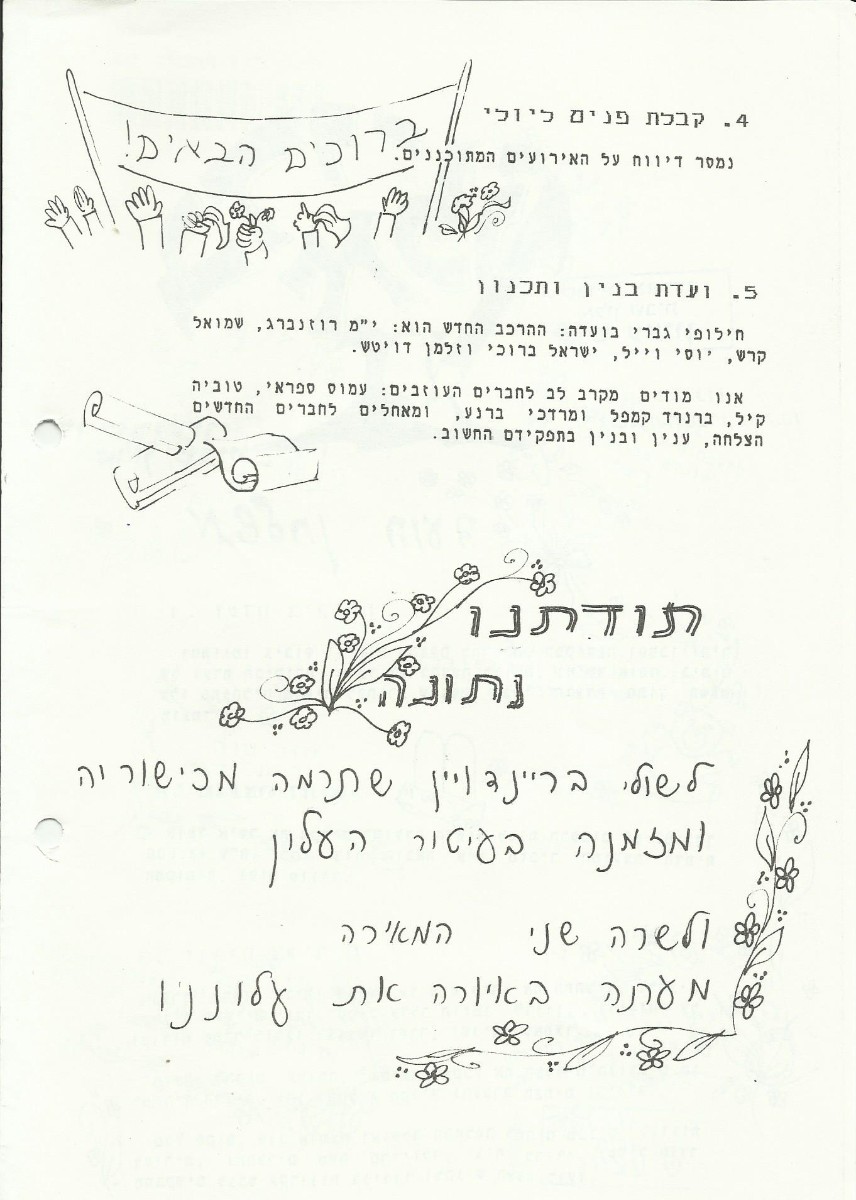 4. קבלת פנים ליולי
ברוכים הבאים!
נמסר דיווח על האירועים המתוכננים.
5. ועדת בנין ותכנון
חילופי גברי בועדה: ההרכב החדש הוא: י"מ רוזנברג, שמואל
קרש, יוסי וייל, ישראל ברוכי וזלמן דויטש.
אנו מודים מקרב לב לחברים העוזבים: עמוס ספראי, טוביה
קיל, ברנרד קמפל ומרדכי ברנע, ומאחלים לחברים החדשים
הצלחה, ענין ובנין בתפקידם החשוב.
תודתנו
נתונה
לשולי בריינדויין שתרמה מכישוריה
ומזמנה בעיטור העלון
ולשרה שני המאירה
מעתה באיורה את עלוננו